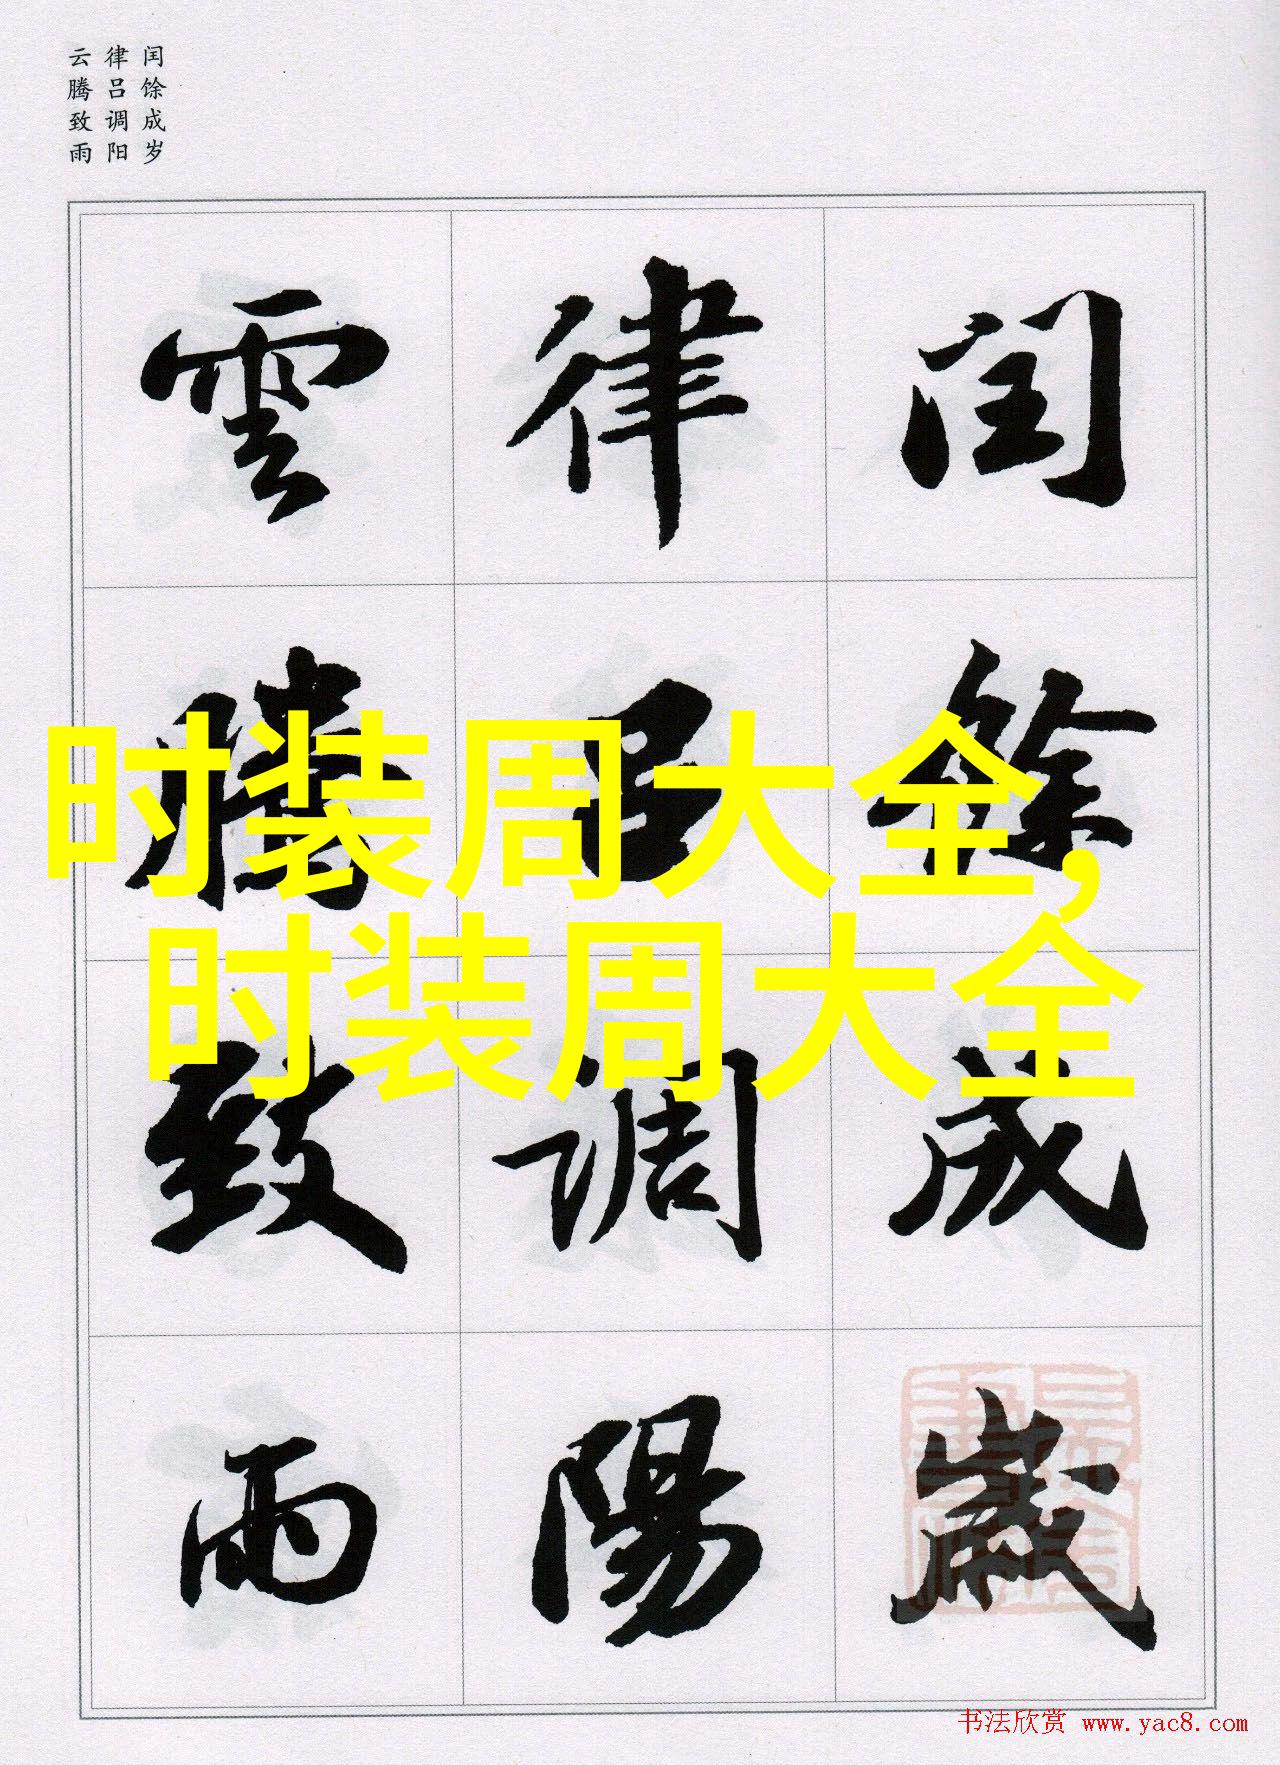 闰馀成岁
律吕调阳
云腾致雨
闰餘成歲
律吕调陽
雲騰致雨
时装周大全,
时装周大全
书法欣赏 www.yac8.com